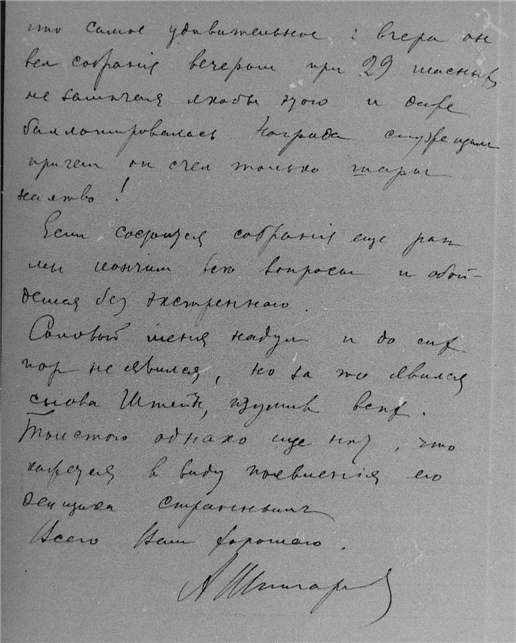 что самое удивительное: вчера он
вел собранія вечером при 29 гласных
не замечая якобы этого и даже
баллотировалась награда служащим
причем он счел только шары
налѣво!
Если состоится собранія еще раз
мы кончим всѣ вопросы и обой-
демся без экстреннаго.
меня надул и до сих
пор не явился, но за то явился
снова Штейн, изумив всѣх.
Толстого однако еще нѣт, что
кажется в виду появленія его
страннымъ
Всего Вам хорошаго.
А Шингарев